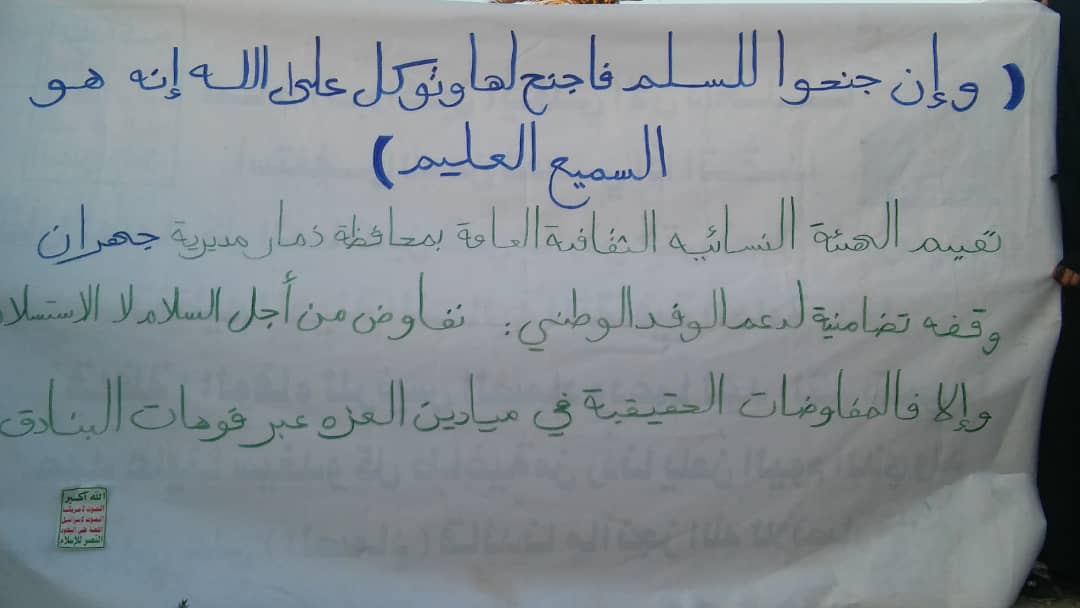 ( وإن جنحوا للسلم فاجنح لها وتوكل على الله إنه هو
السميع العليم )
تقييم الهيئة النسائيه الثقافية العامة بمحافظة ذمار مديرية جهران
وقفه تضامنية لدعم الوفد الوطني : نفاوض من أجل السلام لا الاستسلام
وإلا فالمفاوضات الحقيقية في ميادين العزه عبر فوهات البنادق
الله أكبر
الموت لأمريكا
الموت لإسرائيل
اللعنة على اليهود
النصر للإسلام